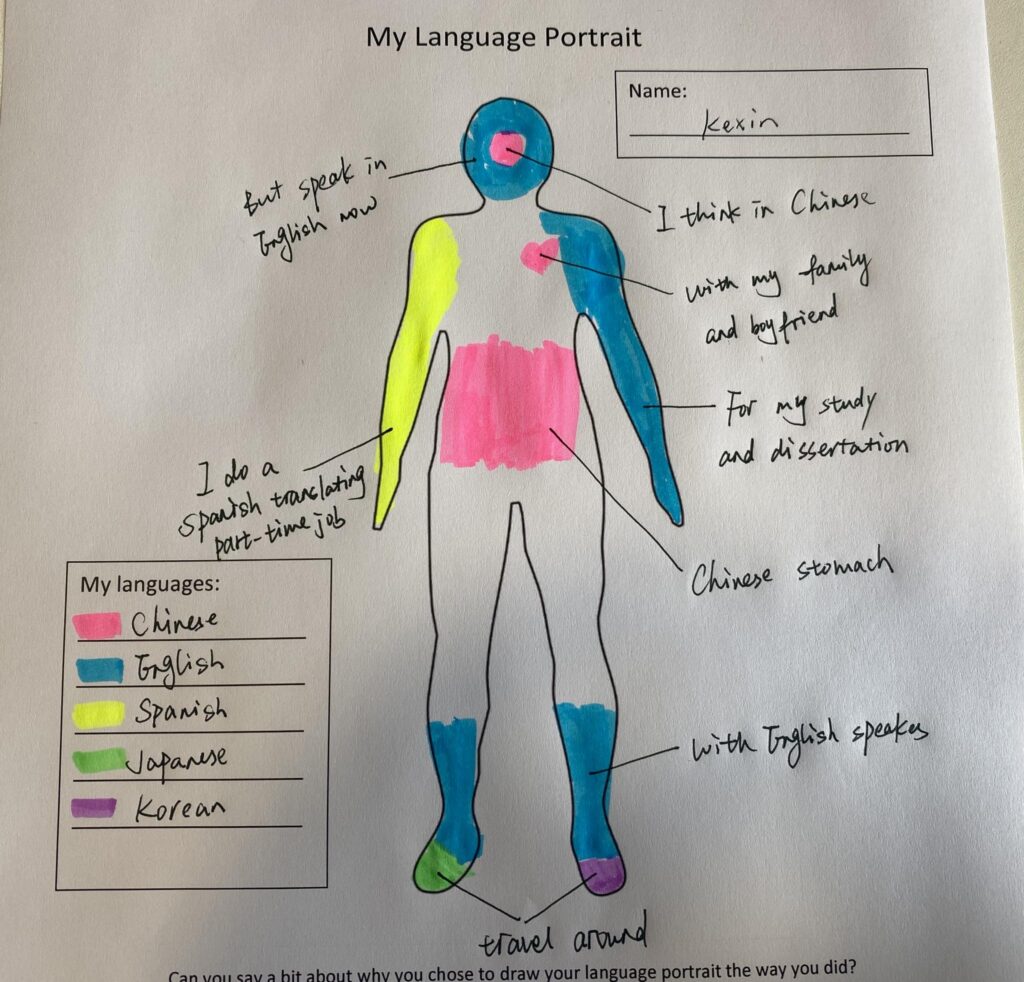 My Language Portrait
Name:
Kexin
But speak in
English now
I think in Chinese
with my family
and boyfriend
For my study
and dissertation
I do a
Spanish translating
part-time job
Chinese stomach
My languages:
Chinese
English
Spanish
Japanese
Korean
with English speakes
travel around
Can you say a bit about why you chose to draw your language portrait the way you did?